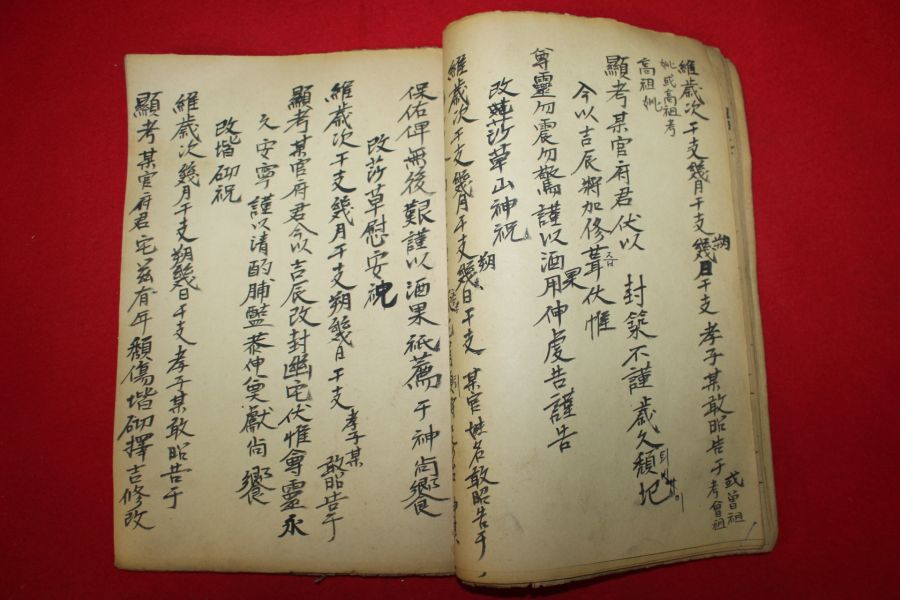 維歲次干支幾月干支朔幾日干支 孝子某敢昭告于 或曾祖考曾祖
妣或高祖考
高祖妣
顯考某官府君伏以 封築不謹歲久頹圮
今以吉辰將加修葺즙伏惟
尊靈勿震勿驚謹以酒果用伸虔告謹告
改莎草山神祝
維歲次干支幾月干支朔幾日干支 某官姓名敢昭告于
保佑俾無後艱謹以酒果祇薦于神尙饗
改莎草慰安祝
維歲次干支幾月干支朔幾日干支 孝子某敢昭告于
顯考某官府君今以吉辰改封幽宅伏惟尊靈永
久安寧謹以清酌脯醢恭伸奠獻尙饗
改堦砌祝
維歲次幾月干支朔幾日干支孝子某敢昭告于
顯考某官府君宅玆有年頹傷堦砌擇吉修改